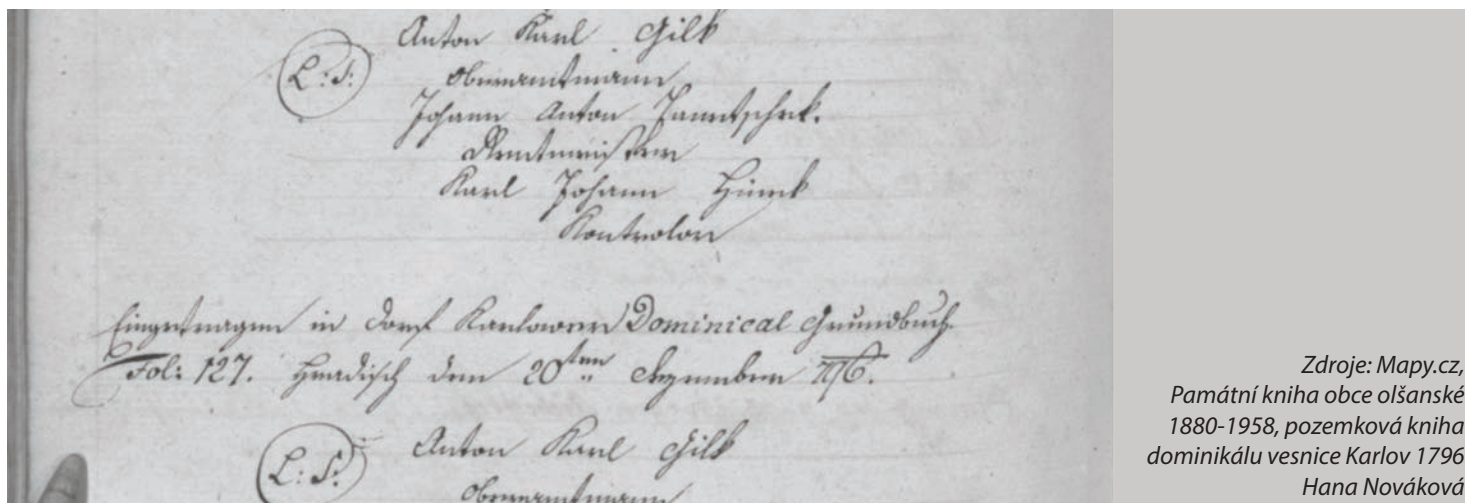 Anton Karl Gilk
L: S:
Oberamtmann
Johann Anton
Rentmeister
Karl Johann
Kontrolor
Eingetragen in Dorf Karlower Dominical Grundbuch
Fol: 127. Hradisch den 20ten Dezember 796.
Anton Karl Gilk
L: S:
Oberamtmann
Zdroje: Mapy.cz,
Památní kniha obce olšanské
1880-1958, pozemková kniha
dominikálu vesnice Karlov 1796
Hana Nováková